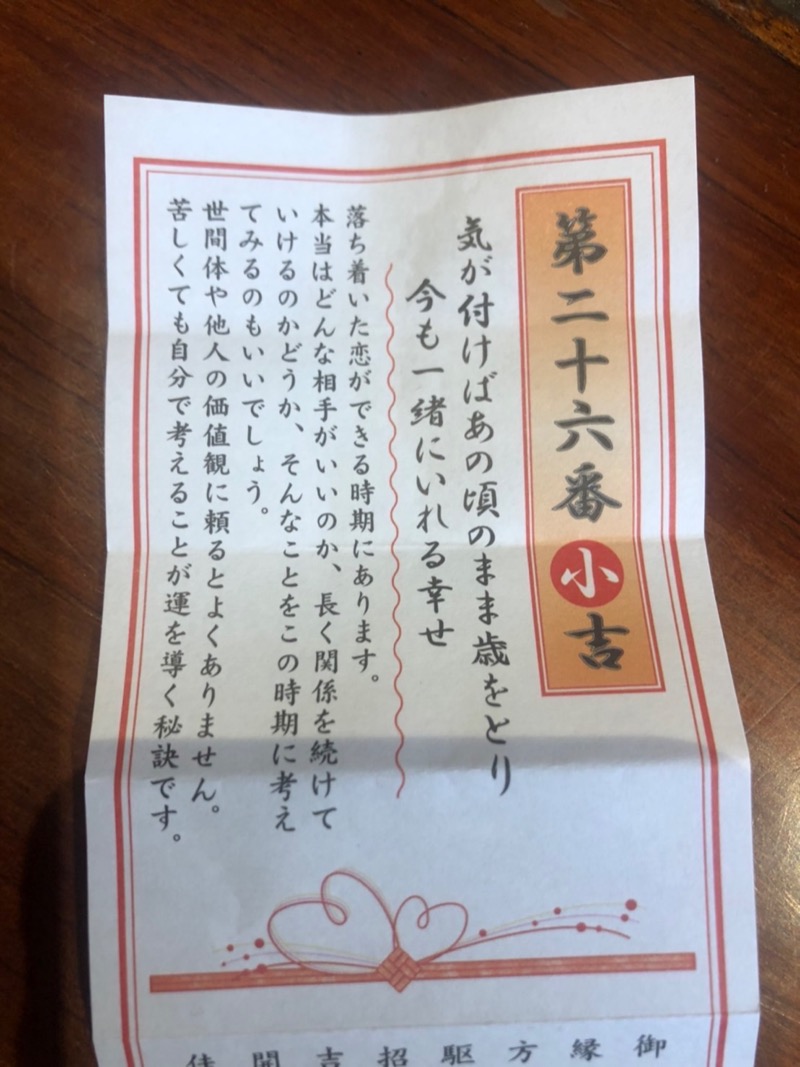 第二十六番 小吉
気が付けばあの頃のまま歳をとり
今も一緒にいれる幸せ
落ち着いた恋ができる時期にあります。
本当はどんな相手がいいのか、長く関係を続けて
いけるのかどうか、そんなことをこの時期に考え
てみるのもいいでしょう。
世間体や他人の価値観に頼るとよくありません。
苦しくても自分で考えることが運を導く秘訣です。
御 縁 方 駆 招 吉 開